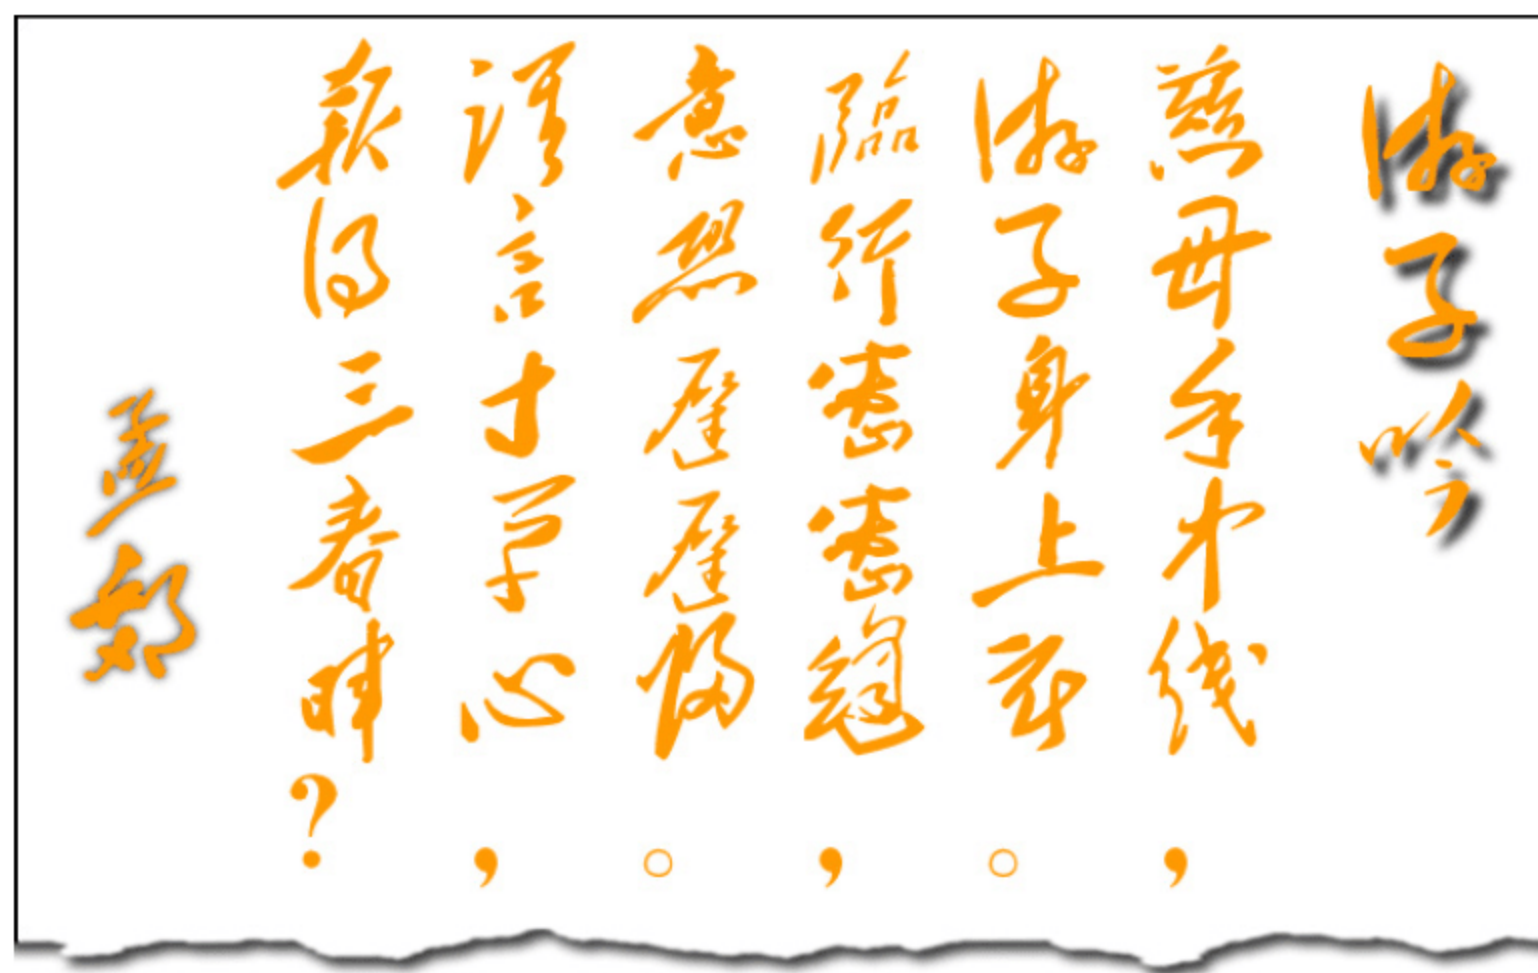 游子吟
慈母手中线，
游子身上衣。
臨行密密縫，
意恐遲遲歸。
谁言寸草心，
報得三春晖？
孟郊